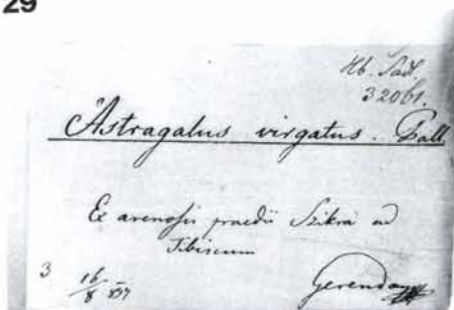 29
Hb. Sadl.
32061.
Astragalus virgatus. Pall
Ex arenosis praedii Szikra ad
Tibiscum
3 16/8 837
Gerenday